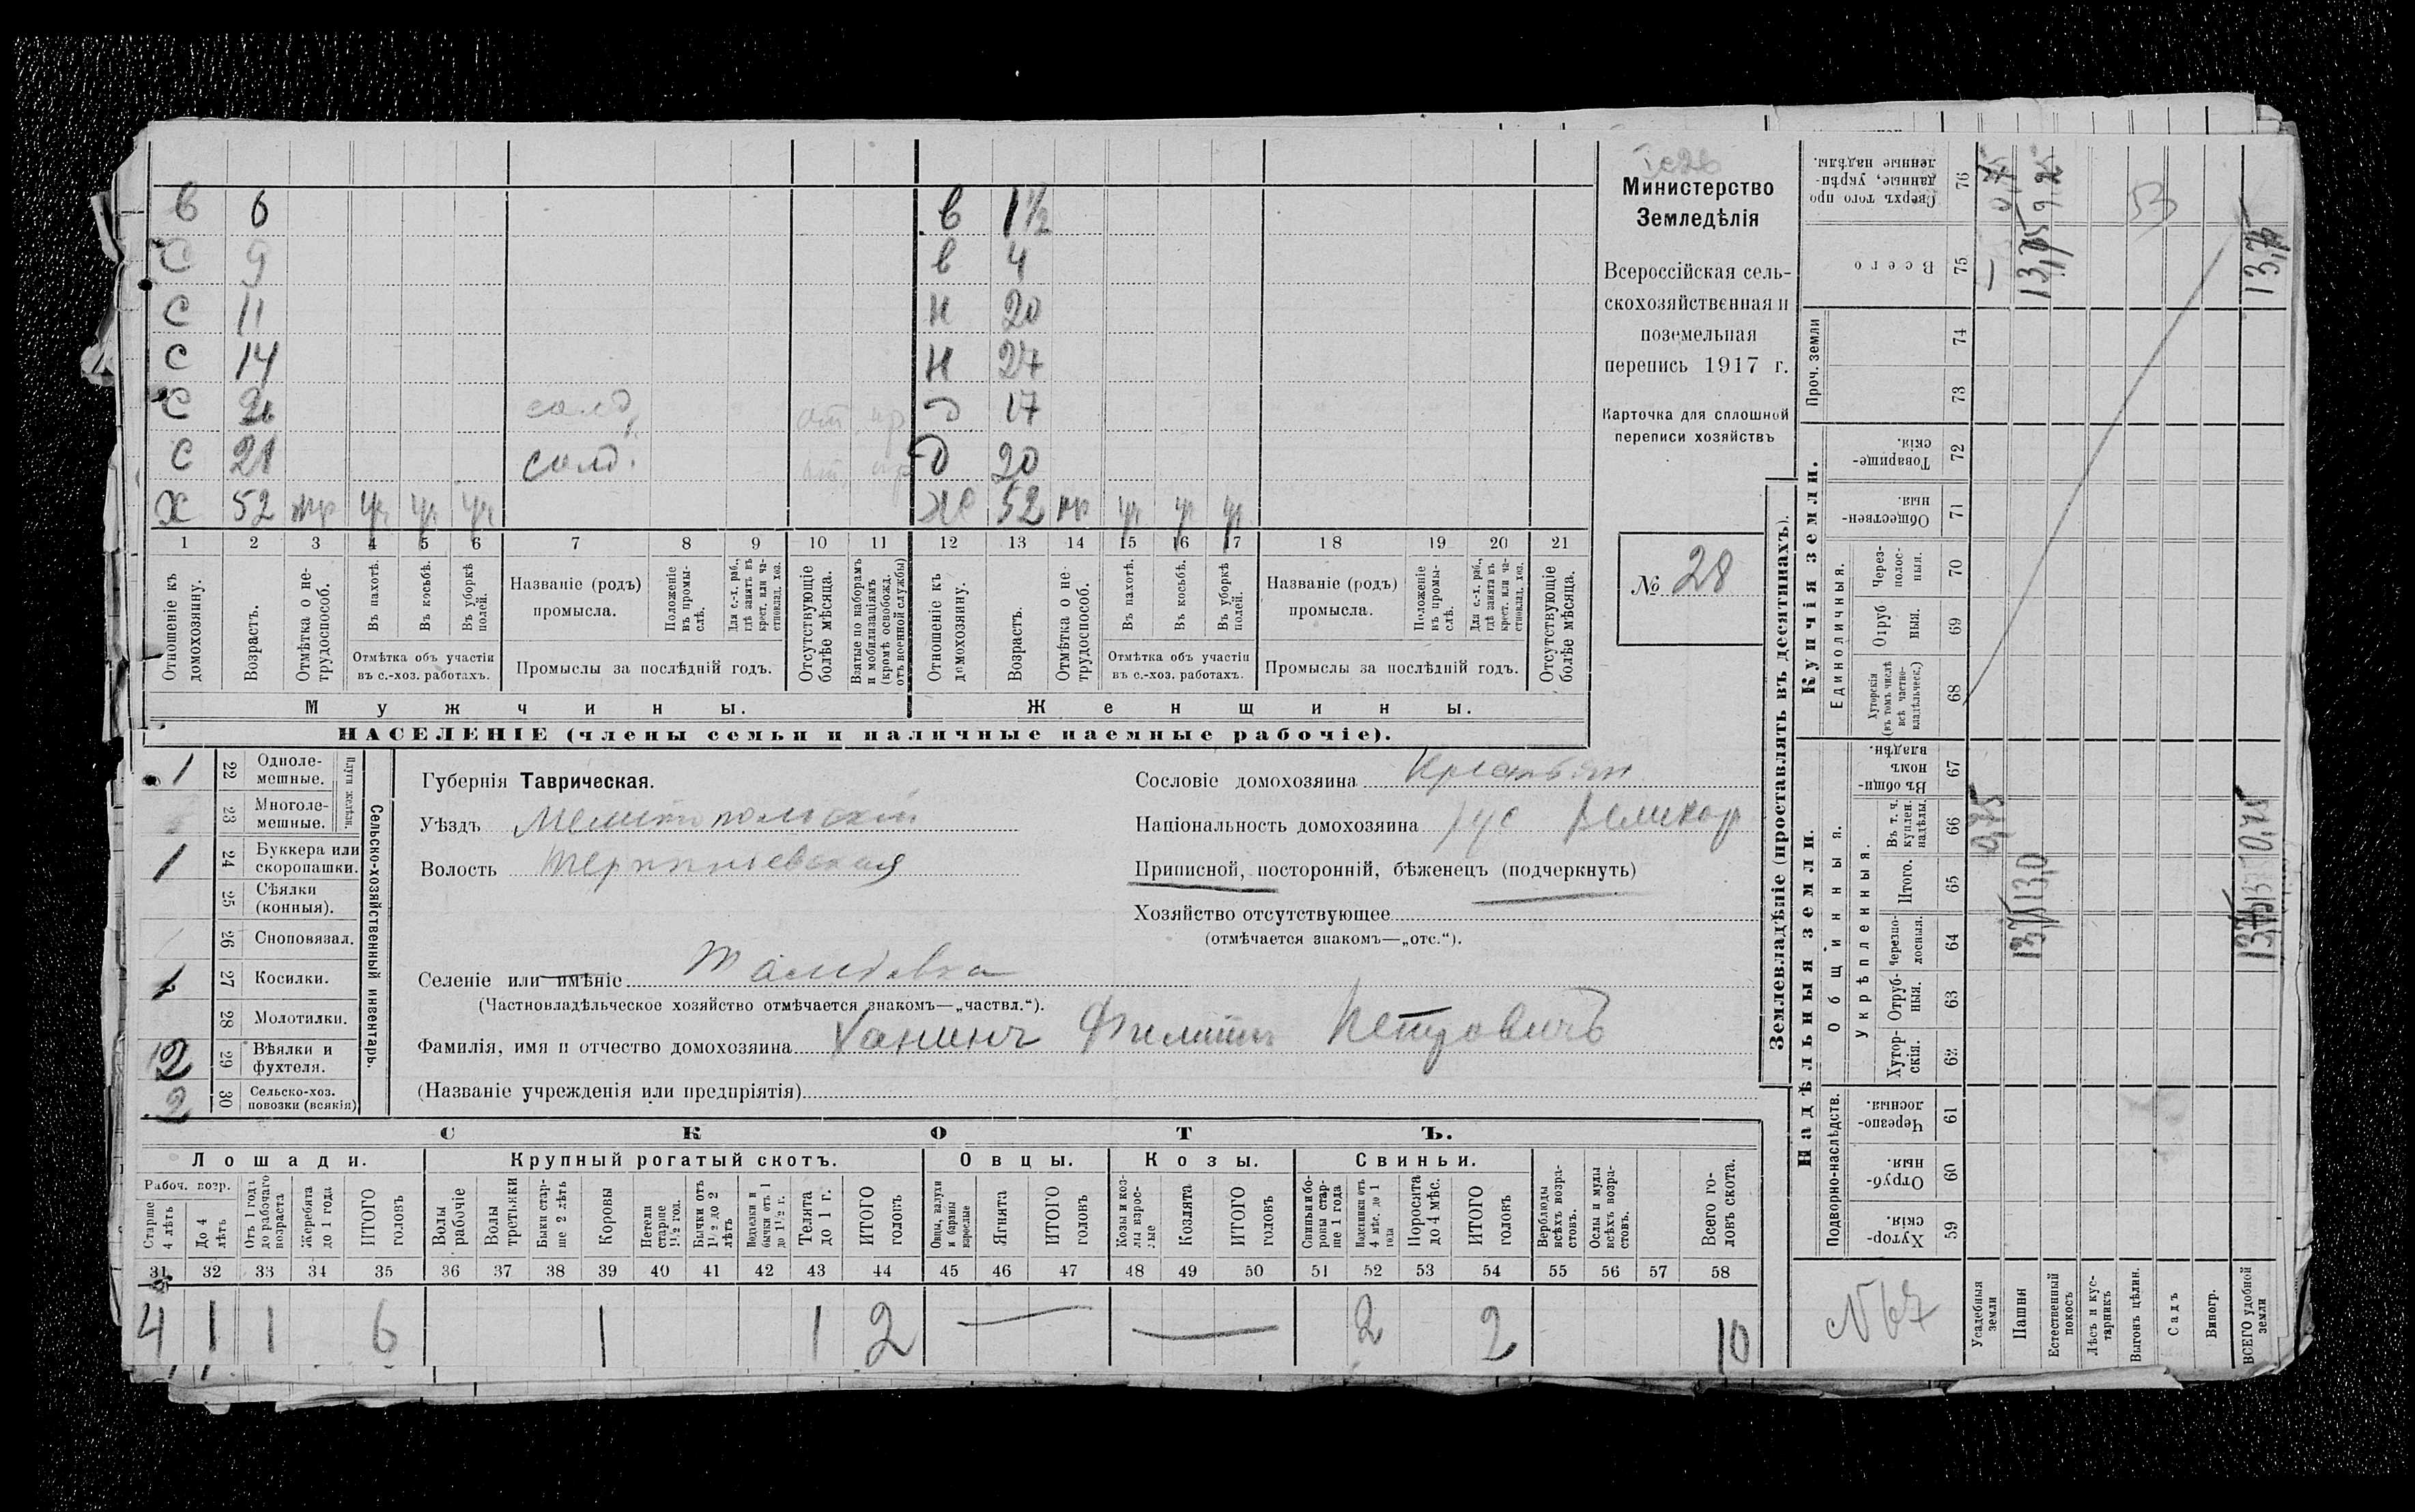 В 6 В 1½
С 9 В 4
С 11 Н 20
С 14 Н 24
С солд. Д 17
С 21 солд. Д 20
Х 52 уч уч уч Ж 52 уч уч уч
1 2 3 4 5 6 7 8 9 10 11 12 13 14 15 16 17 18 19 20 21
Отношеніе къ домохозяину.
Возрастъ.
Отмѣтка о нетрудоспособ.
Въ пахотѣ.
Въ косьбѣ.
Въ уборкѣ полей.
Отмѣтка объ участіи въ с.-хоз. работахъ.
Названіе (родъ) промысла.
Положеніе въ промыслѣ.
Для с.-х. раб., гдѣ занятъ въ крест. или частновлад. хоз.
Промыслы за послѣдній годъ.
Отсутствующіе болѣе мѣсяца.
Взятые по наборамъ и мобилизаціямъ (кромѣ освобожд. отъ военной службы)
Отношеніе къ домохозяину.
Возрастъ.
Отмѣтка о нетрудоспособ.
Въ пахотѣ.
Въ косьбѣ.
Въ уборкѣ полей.
Отмѣтка объ участіи въ с.-хоз. работахъ.
Названіе (родъ) промысла.
Положеніе въ промыслѣ.
Для с.-х. раб., гдѣ занята въ крест. или частновлад. хоз.
Промыслы за послѣдній годъ.
Отсутствующіе болѣе мѣсяца.
Мужчины. Женщины.
НАСЕЛЕНІЕ (члены семьи и наличные наемные рабочіе).
Министерство
Земледѣлія
Всероссійская сель-
скохозяйственная и
поземельная
перепись 1917 г.
Карточка для сплошной
переписи хозяйствъ
№ 28
1 22 Однолемешные.
23 Многолемешные.
Плуги желѣзн.
1 24 Буккера или скоропашки.
25 Сѣялки (конныя).
26 Сноповязал.
1 27 Косилки.
28 Молотилки.
2 29 Вѣялки и фухтеля.
2 30 Сельско-хоз. повозки (всякія)
Сельско-хозяйственный инвентарь.
Губернія Таврическая.
Уѣздъ Мелитопольскій
Волость Терпѣніевская
Сословіе домохозяина Крестьян
Національность домохозяина рус великор
Приписной, посторонній, бѣженецъ (подчеркнуть)
Хозяйство отсутствующее
(отмѣчается знакомъ—„отс.“).
Селеніе или имѣніе
(Частновладѣльческое хозяйство отмѣчается знакомъ—„частвл.“).
Фамилія, имя и отчество домохозяина Ханинъ Филиппъ Петровичъ
(Названіе учрежденія или предпріятія)
СКОТЪ.
Лошади. Крупный рогатый скотъ. Овцы. Козы. Свиньи.
Рабоч. возр.
Старше 4 лѣтъ
До 4 лѣтъ
Отъ 1 года до рабочаго возраста
Жеребята до 1 года
ИТОГО головъ
Волы рабочіе
Волы третьяки
Быки старше 2 лѣтъ
Коровы
Нетели старше 1½ год.
Бычки отъ 1½ до 2 лѣтъ
Подтелки и бычки отъ 1 до 1½ г.
Телята до 1 г.
ИТОГО головъ
Овцы, валухи и бараны взрослые
Ягнята
ИТОГО головъ
Козы и козлы взрослые
Козлята
ИТОГО головъ
Свиньи и боровы старше 1 года
Подсвинки отъ 4 мѣс. до 1 года
Поросята до 4 мѣс.
ИТОГО головъ
Верблюды всѣхъ возрастовъ.
Ослы и мулы всѣхъ возрастовъ.
Всего головъ скота.
31 32 33 34 35 36 37 38 39 40 41 42 43 44 45 46 47 48 49 50 51 52 53 54 55 56 57 58
4 1 1 6 1 1 2 — — 2 2 10
Землевладѣніе (проставлять въ десятинахъ).
Надѣльныя земли. Купчія земли.
Подворно-наслѣдств.
Общинныя.
Укрѣпленныя.
Единоличныя.
Проч. земли
Хуторскія. 59
Отрубныя. 60
Черезполосныя. 61
Хуторскія. 62
Отрубныя. 63
Черезполосныя. 64
Итого. 65
Въ т. ч. куплен. надѣлы. 66
Въ общинномъ владѣн. 67
Хуторскія (въ томъ числѣ всѣ частновладѣльческ.) 68
Отрубныя. 69
Черезполосныя. 70
Общественныя. 71
Товарищескія. 72
73
74
Всего 75
Сверхъ того проданные, укрѣпленные надѣлы. 76
N 67
Усадебныя земли 0,75
Пашня 13,0
Естественный покосъ
Лѣсъ и кустарникъ
Выгонъ цѣлин.
Садъ
Виногр.
ВСЕГО удобной земли 13,75